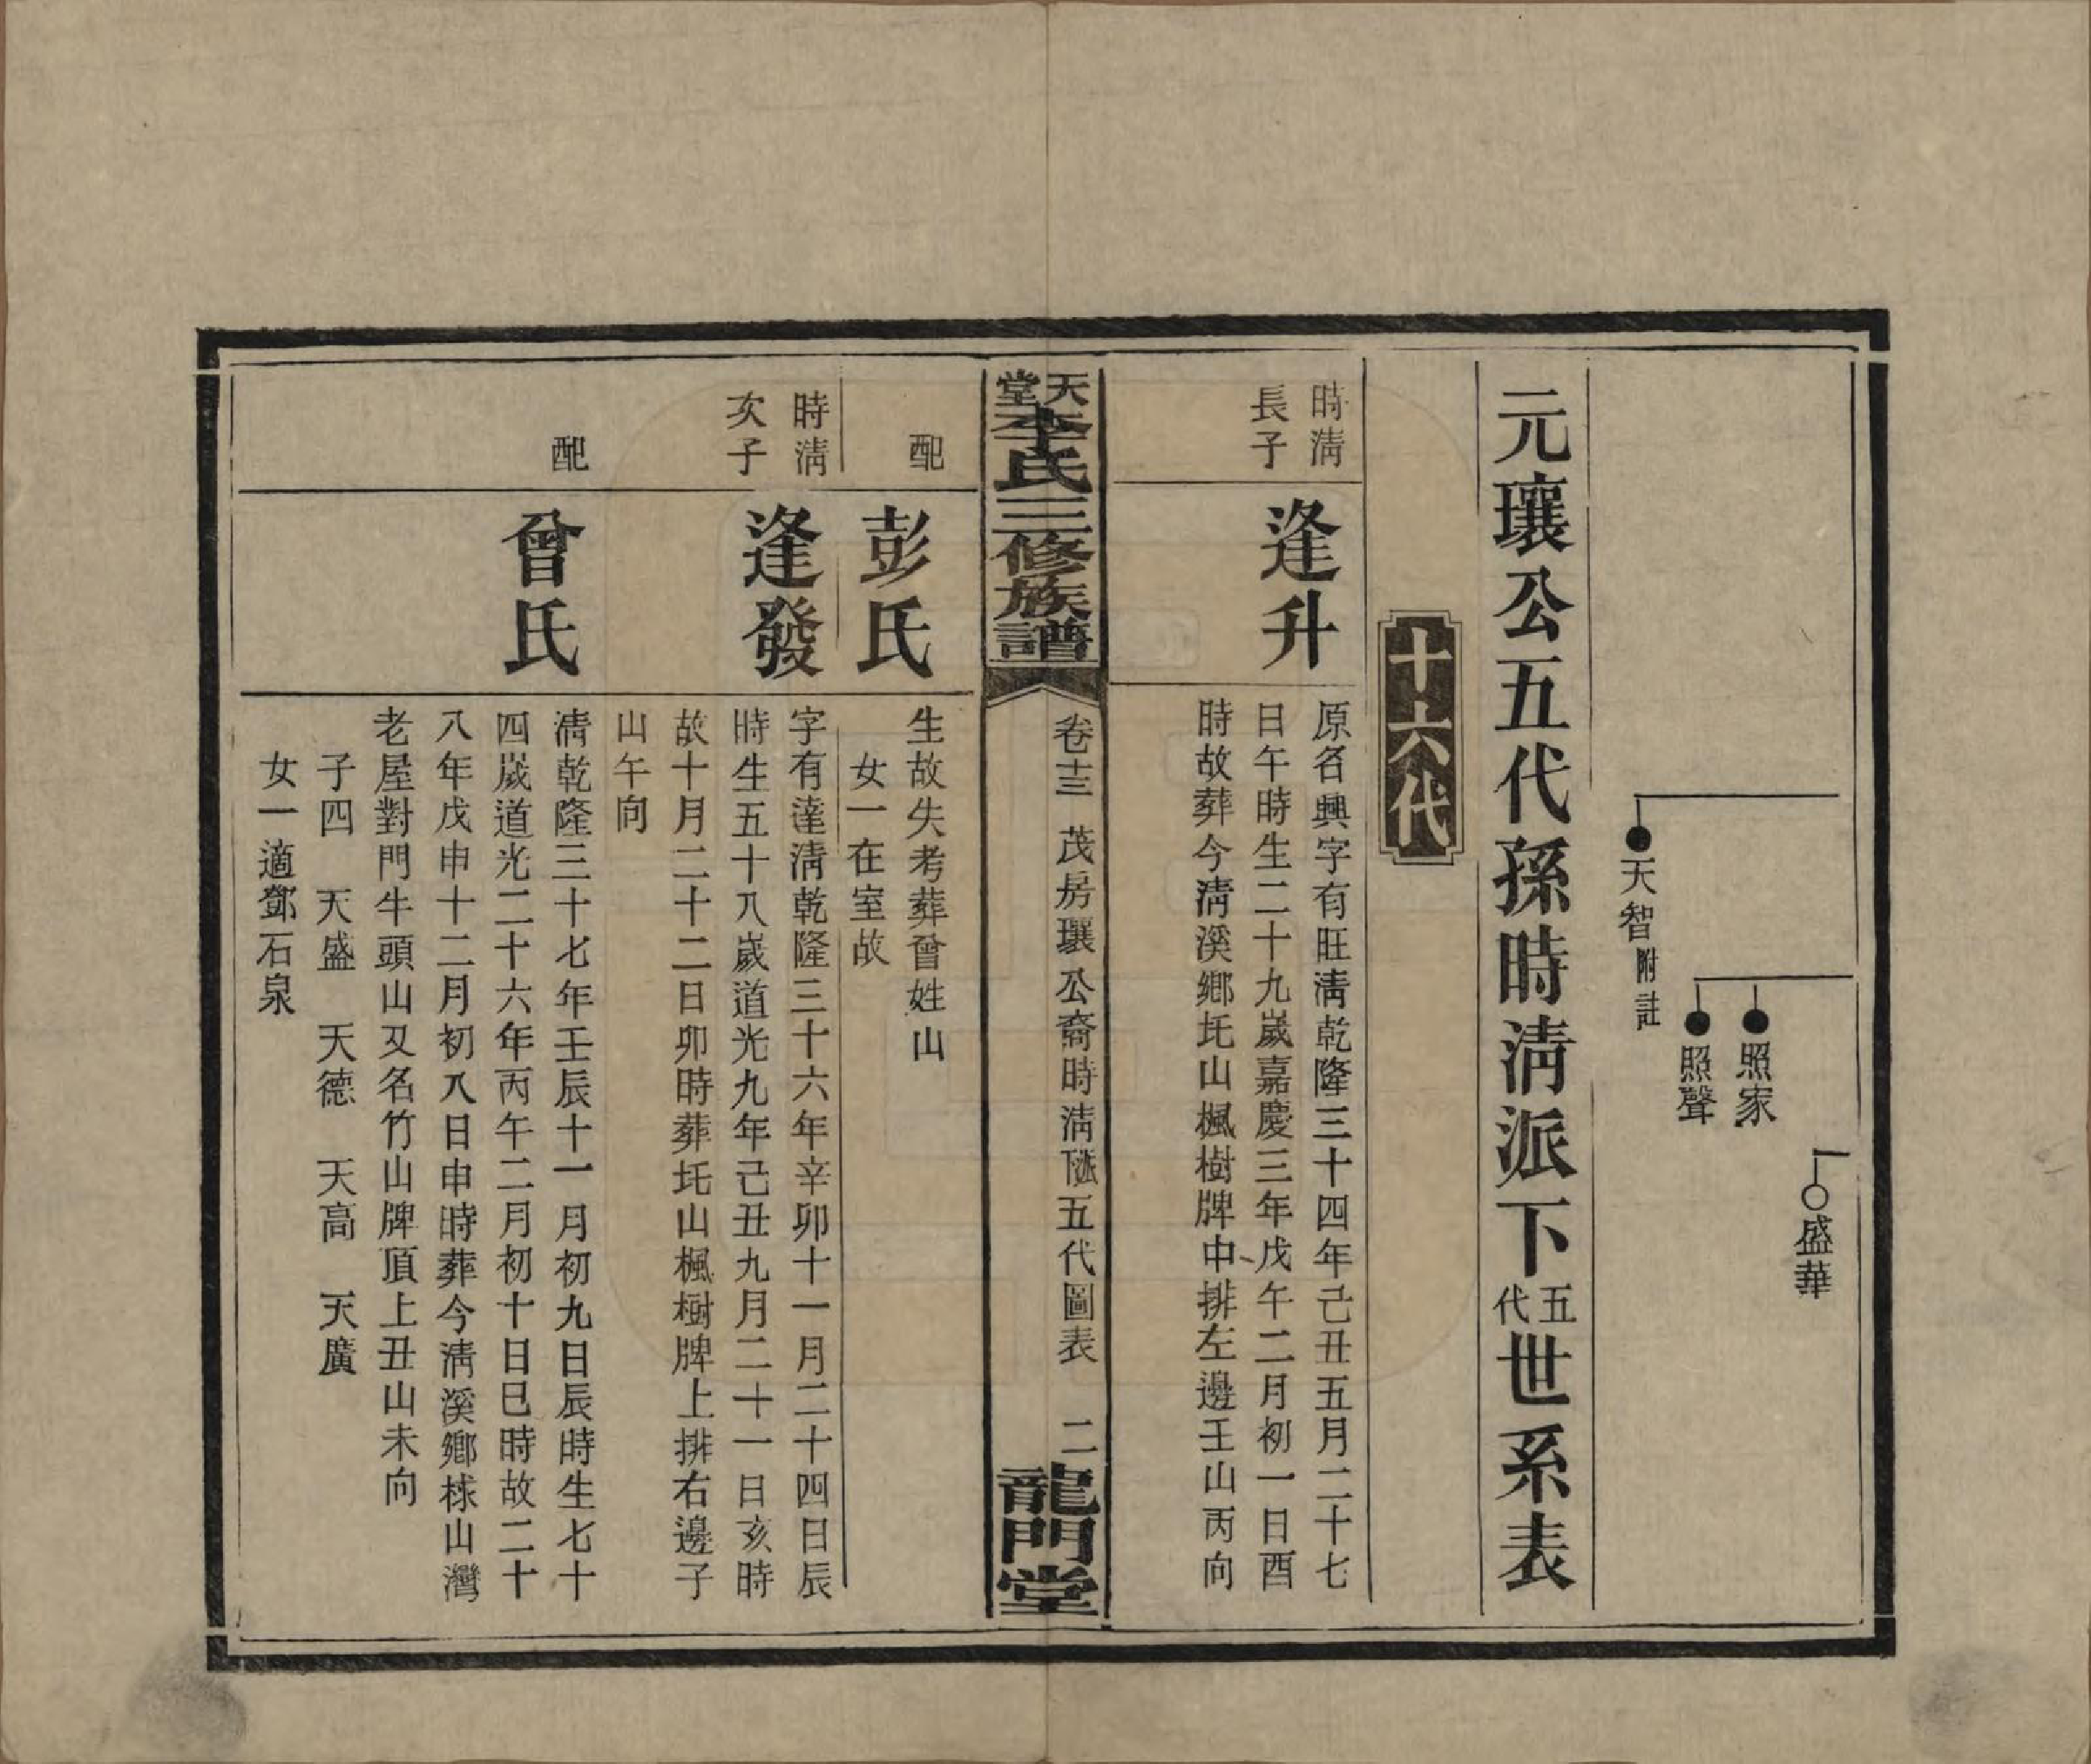 盛華
照家
照聲
天智附註
元瓖公五代孫時淸派下五代世系表
十六代
時淸
長子
逢升
原名興字有旺淸乾隆三十四年己丑五月二十七
日午時生二十九歲嘉慶三年戊午二月初一日酉
時故葬今淸溪鄉圫山楓樹牌中排左邊壬山丙向
天堂李氏三修族譜
卷十三 茂房瓖公裔時淸派五代圖表 二
龍門堂
配
彭氏
生故失考葬曾姓山
女一在室故
時淸
次子
逢發
字有達淸乾隆三十六年辛卯十一月二十四日辰
時生五十八歲道光九年己丑九月二十一日亥時
故十月二十二日卯時葬圫山楓樹牌上排右邊子
山午向
配
曾氏
淸乾隆三十七年壬辰十一月初九日辰時生七十
四歲道光二十六年丙午二月初十日巳時故二十
八年戊申十二月初八日申時葬今淸溪鄉栐山灣
老屋對門牛頭山又名竹山牌頂上丑山未向
子四 天盛 天德 天高 天廣
女一適鄧石泉